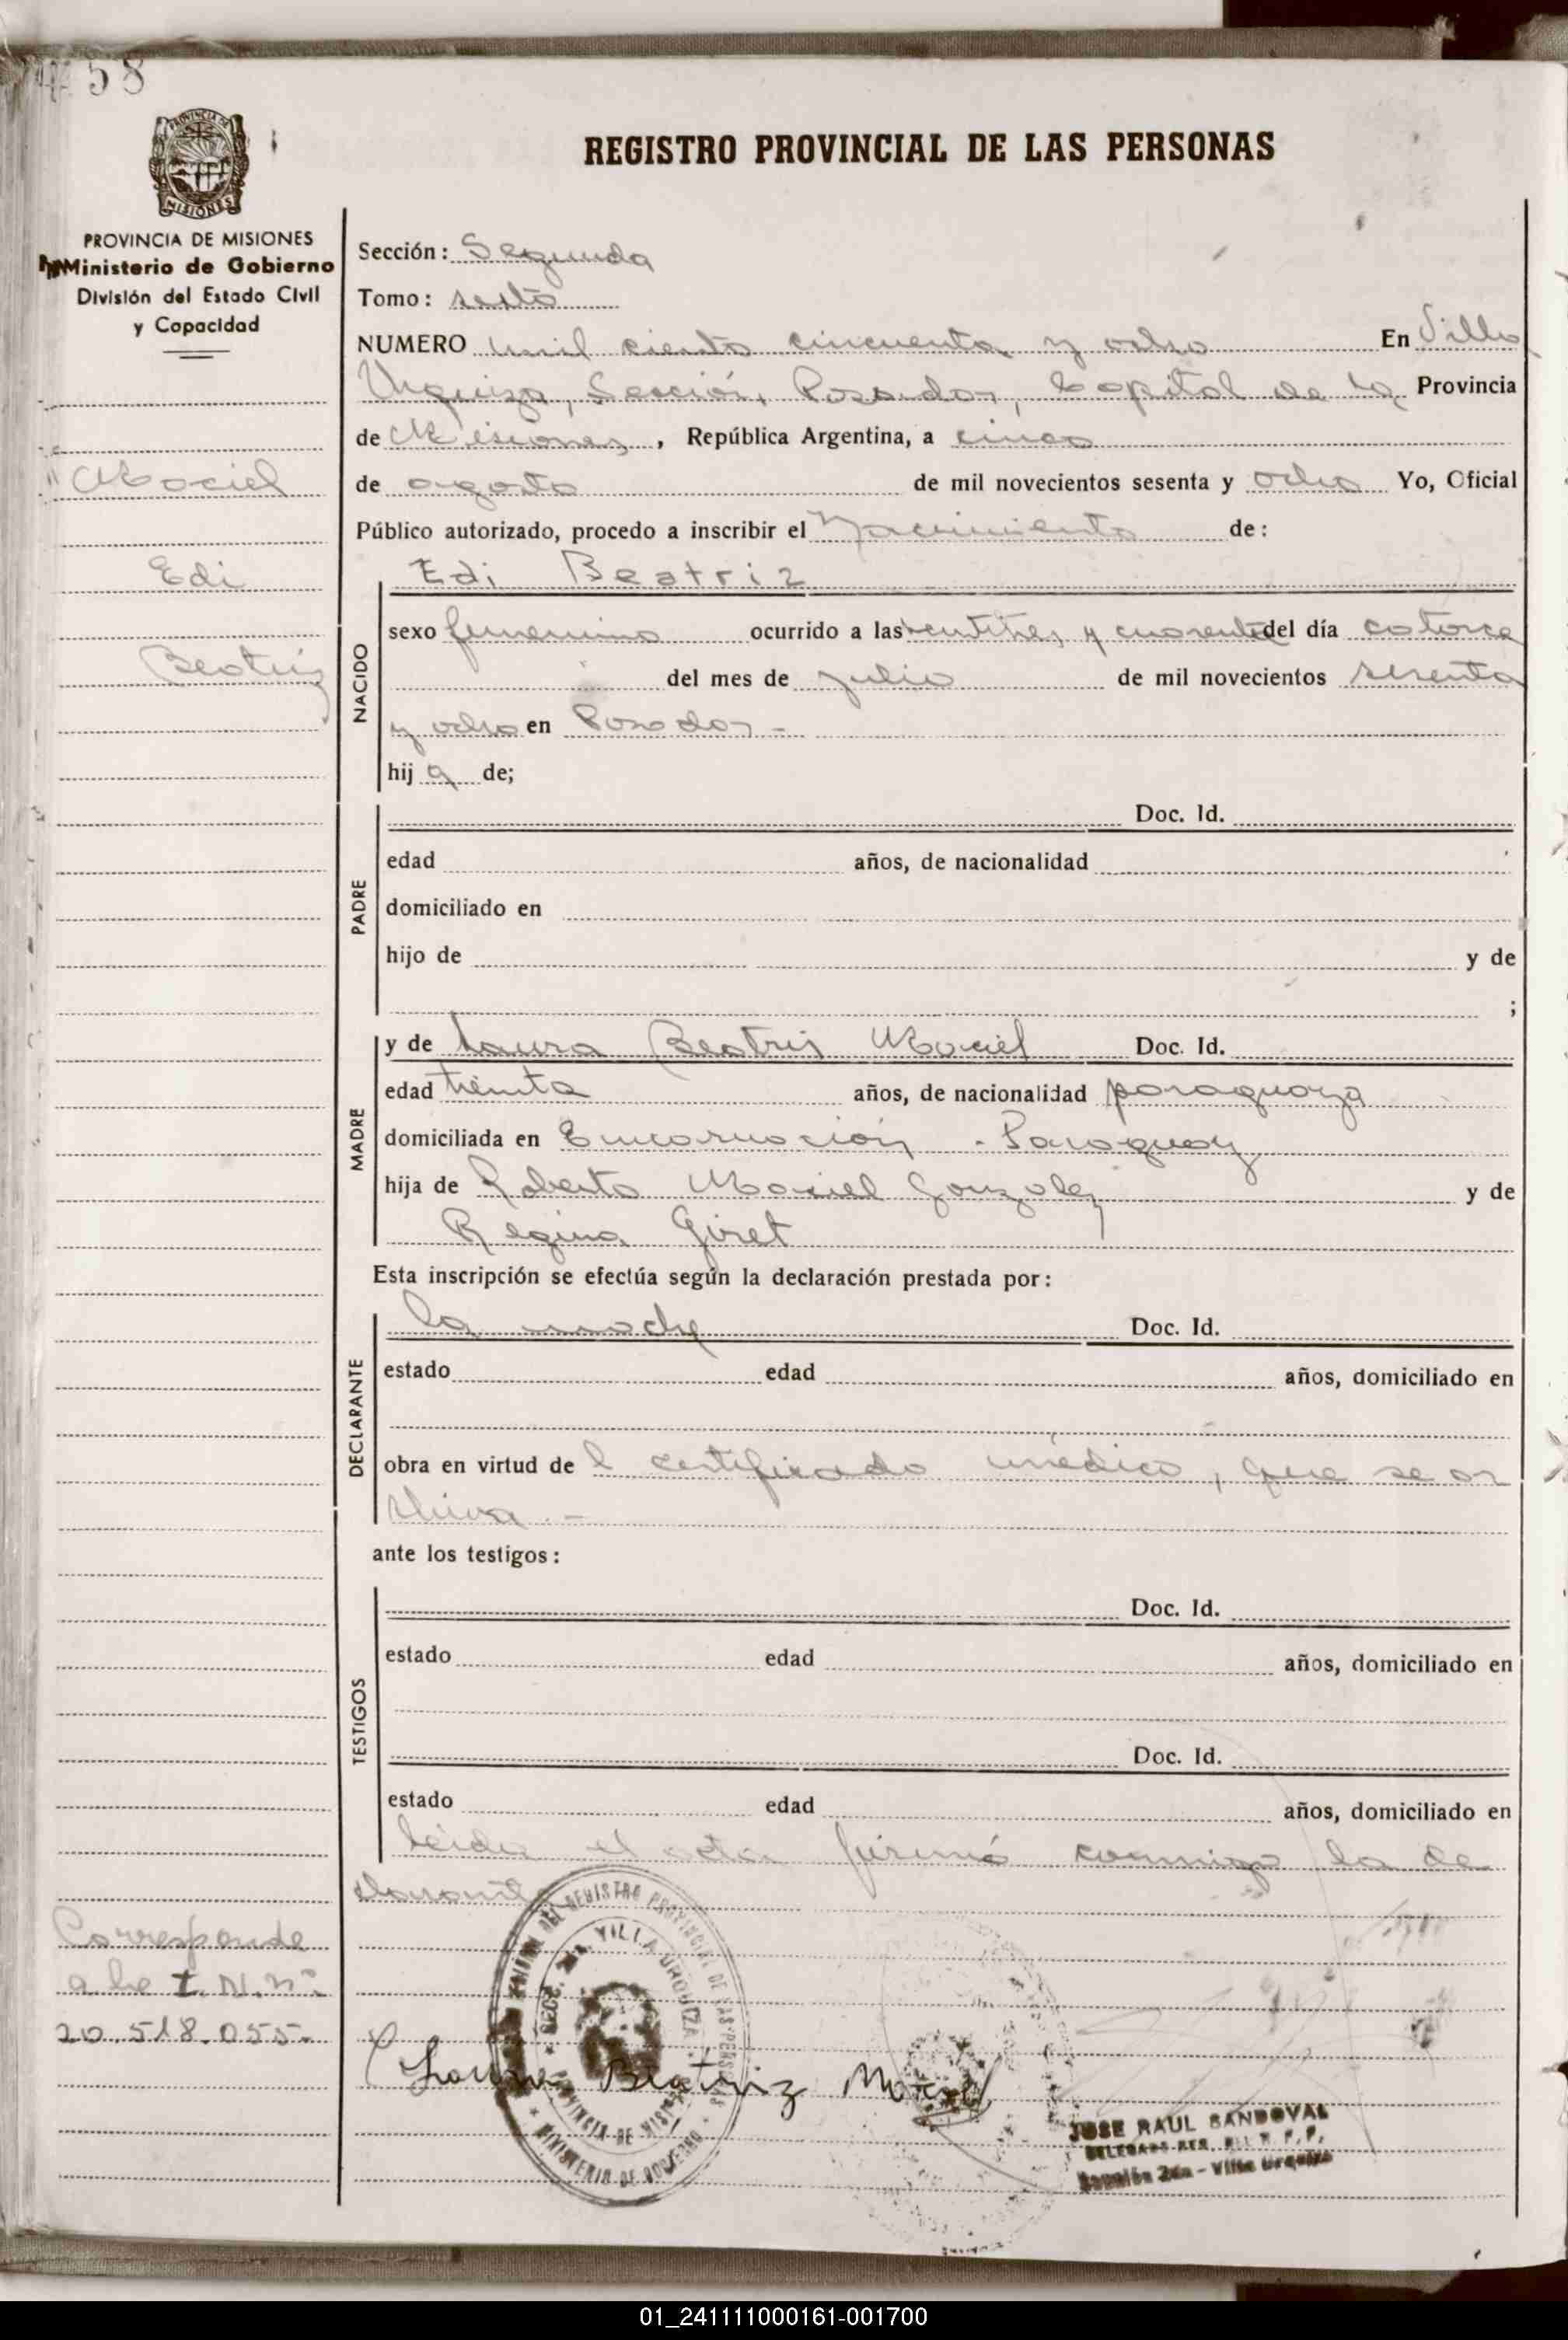 58
PROVINCIA DE MISIONES
Ministerio de Gobierno
División del Estado Civil
y Capacidad
REGISTRO PROVINCIAL DE LAS PERSONAS
Sección: Segunda
Tomo: sexto
NUMERO mil ciento cincuenta y ocho En Villa
Urquiza, Sección, Posadas, Capital de la Provincia
de Misiones, República Argentina, a cinco
Maciel
de agosto de mil novecientos sesenta y ocho Yo, Oficial
Público autorizado, procedo a inscribir el Nacimiento de:
Edi
Edi Beatriz
NACIDO
sexo femenino ocurrido a las veintitres y cuarenta del día catorce
Beatriz
del mes de julio de mil novecientos sesenta
y ocho en Posadas -
hij a de;
PADRE
Doc. Id.
edad años, de nacionalidad
domiciliado en
hijo de y de
;
MADRE
y de Laura Beatriz Maciel Doc. Id.
edad treinta años, de nacionalidad paraguaya
domiciliada en Encarnación - Paraguay
hija de Roberto Maciel Gonzalez y de
Regina Giret
Esta inscripción se efectúa según la declaración prestada por:
DECLARANTE
la madre Doc. Id.
estado edad años, domiciliado en
obra en virtud de l certificado médico, que se ar
chiva. -
ante los testigos:
TESTIGOS
Doc. Id.
estado edad años, domiciliado en
Doc. Id.
estado edad años, domiciliado en
leida el acta firmó conmigo la de
clarante
Corresponde
a la I. N. nº
20.518.055.
REGISTRO PROVINCIAL DE LAS PERSONAS
SECC. 2da. VILLA URQUIZA
PROVINCIA DE MISIONES
MINISTERIO DE GOBIERNO
Laura Beatriz Maciel
JOSE RAUL SANDOVAL
Sección 2da - Villa Urquiza
01_241111000161-001700